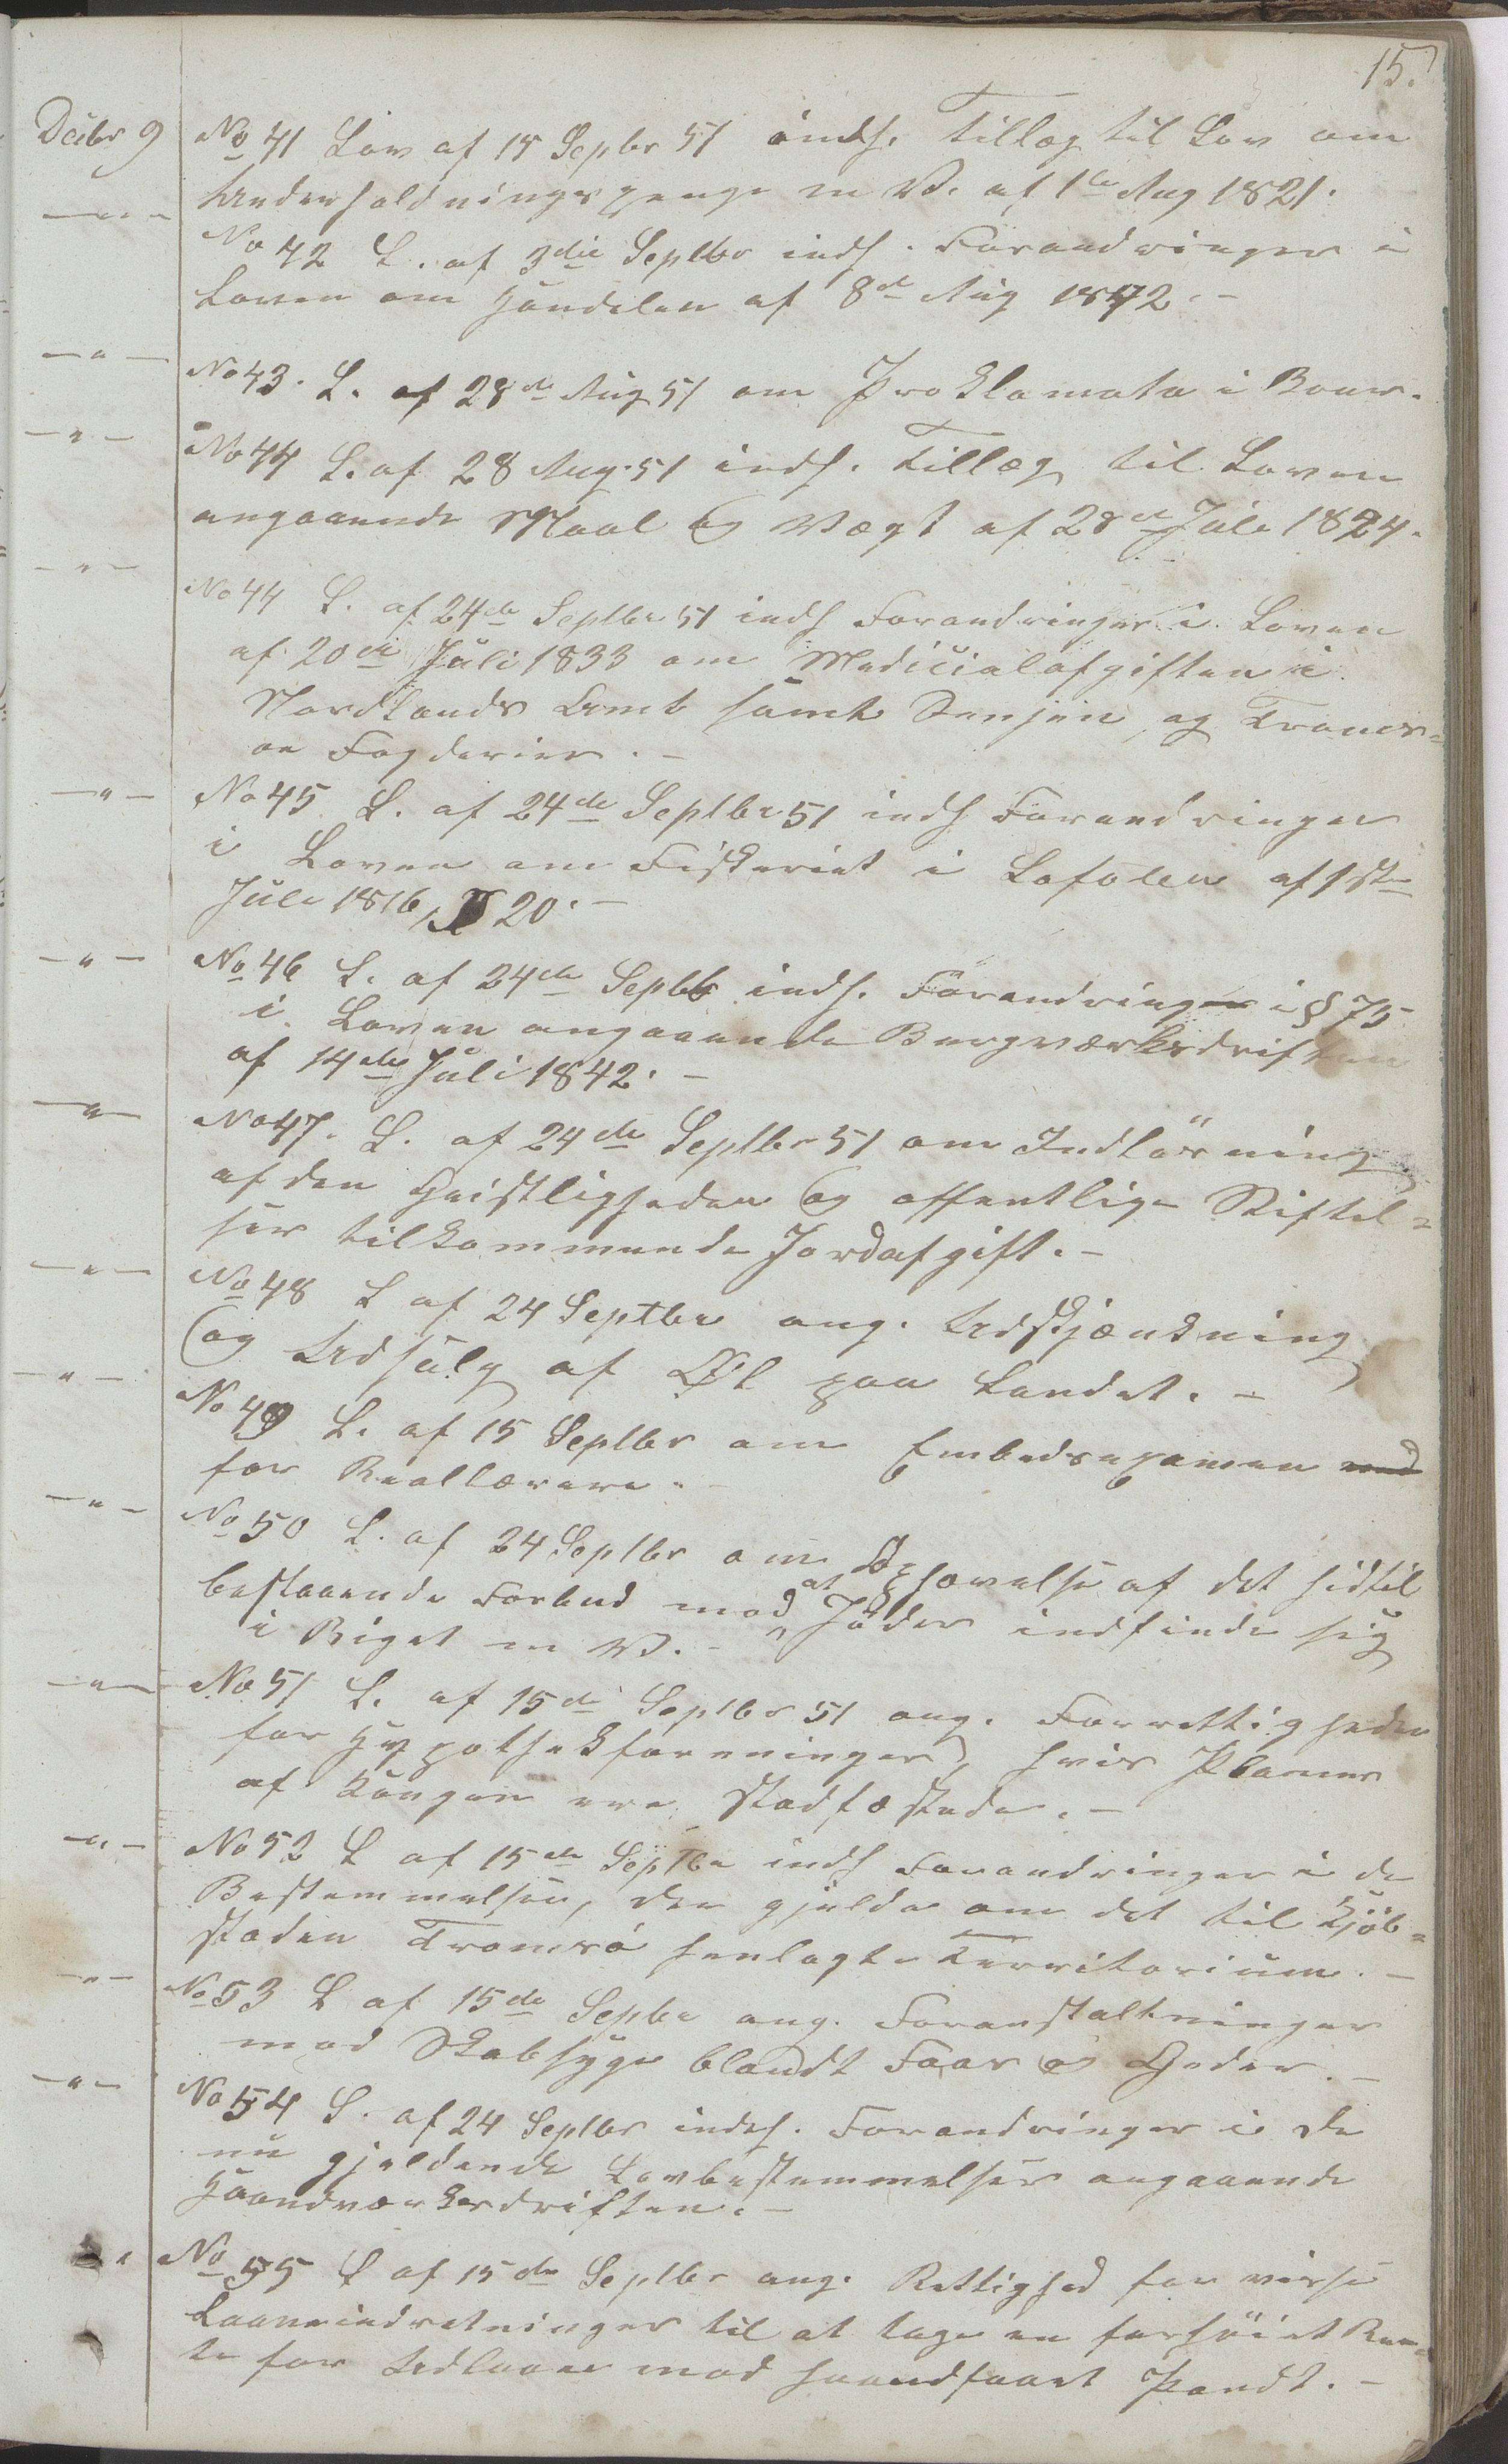 15.
Decbr 9 No 41 Lov af 15 Septbr 51 indh. Tillæg til Lov om
Underholdningspenge m V. af 1ste Aug 1821.
— " — No 42 L. af 3die Septbr indh. Forandringer i
Loven om Handelen af 8de Aug 1842. –
— " — No 43. L. af 28de Aug 51 om Proklamata i Boer.
— " — No 44 L. af 28 Aug. 51 indh. Tillæg til Loven
angaaende Maal og Vægt af 28de Juli 1824.
— " — No 44 L. af 24de Septbr 51 indh Forandringer i Loven
af 20de Juli 1833 om Medicialafgiften i
Nordlands Amt samt Senjen og Troms=
øe Fogderier. –
— " — No 45 L. af 24de Septbr 51 indh Forandringer
i Loven om Fiskeriet i Lofoten af 1ste
Juli 1816, § 20. –
— " — No 46 L. af 24de Septbr indh. Forandring i § 75
i Loven angaaende Bergværksdriften
af 14de Juli 1842. –
— " — No 47. L. af 24de Septbr 51 om Indløsning
af den Geistligheden og offentlige Stiftel=
ser tilkommende Jordafgift. –
— " — No 48 L af 24 Septbr ang. Udskjænkning
og Udsalg af Øl paa Landet. –
— " — No 49 L. af 15 Septbr om Embedsexamen med
for Reallærere. –
— " — No 50 L. af 24 Septbr om Ophævelse af det hidtil
bestaaende Forbud mod at Jøder indfinde sig
i Riget m V. –
— " — No 51 L. af 15de Septbr 51 ang. Forrettigheder
for Hypothekforeninger, hvis Planer
af Kongen ere stadfæstede. –
— " — No 52 L af 15de Septbr indh Forandringer i de
Bestemmelser, der gjelde om det til Kjöb=
staden Tromsö henlagte Territorium. –
— " — No 53 L af 15de Septbr ang. Foranstaltninger
mod Skabsyge blandt Faar og Geder. –
— " — No 54 L. af 24 Septbr indeh. Forandringer i de
nu gjeldende Lovbestemmelser angaaende
Haandværksdriften. –
" No 55 L af 15de Septbr ang. Rettighed for visse
Laaneindretninger til at tage en forhöiet Ren=
te for Udlaan mod haandfaaet Pandt. –